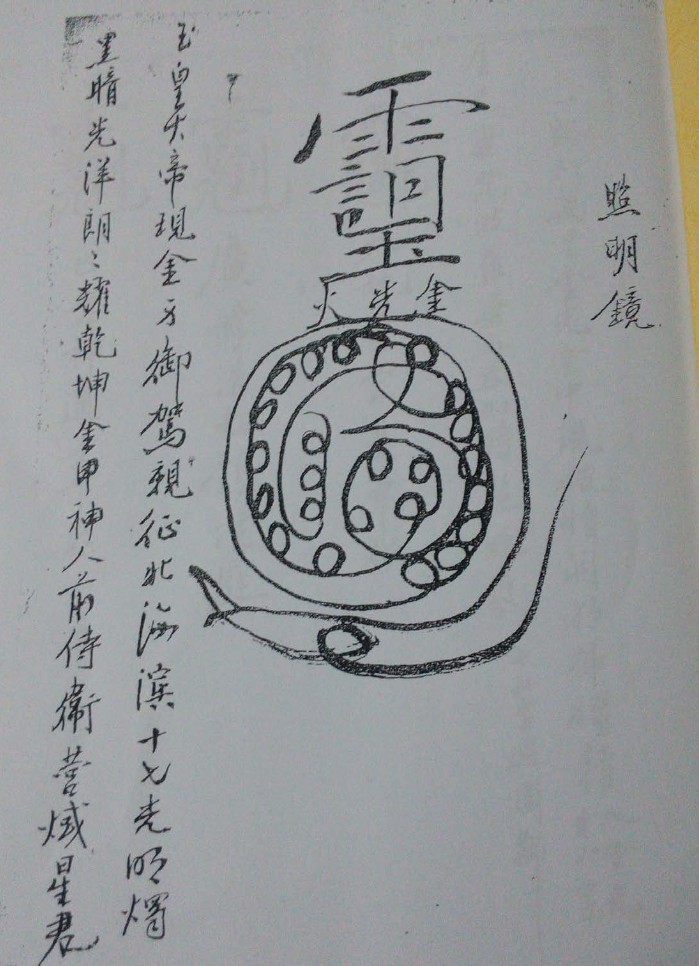 照明鏡
金光火
玉皇大帝現金御駕親征北海濱十七光明燭
黑暗光洋朗々耀乾坤金甲神人前侍衛营熾星君